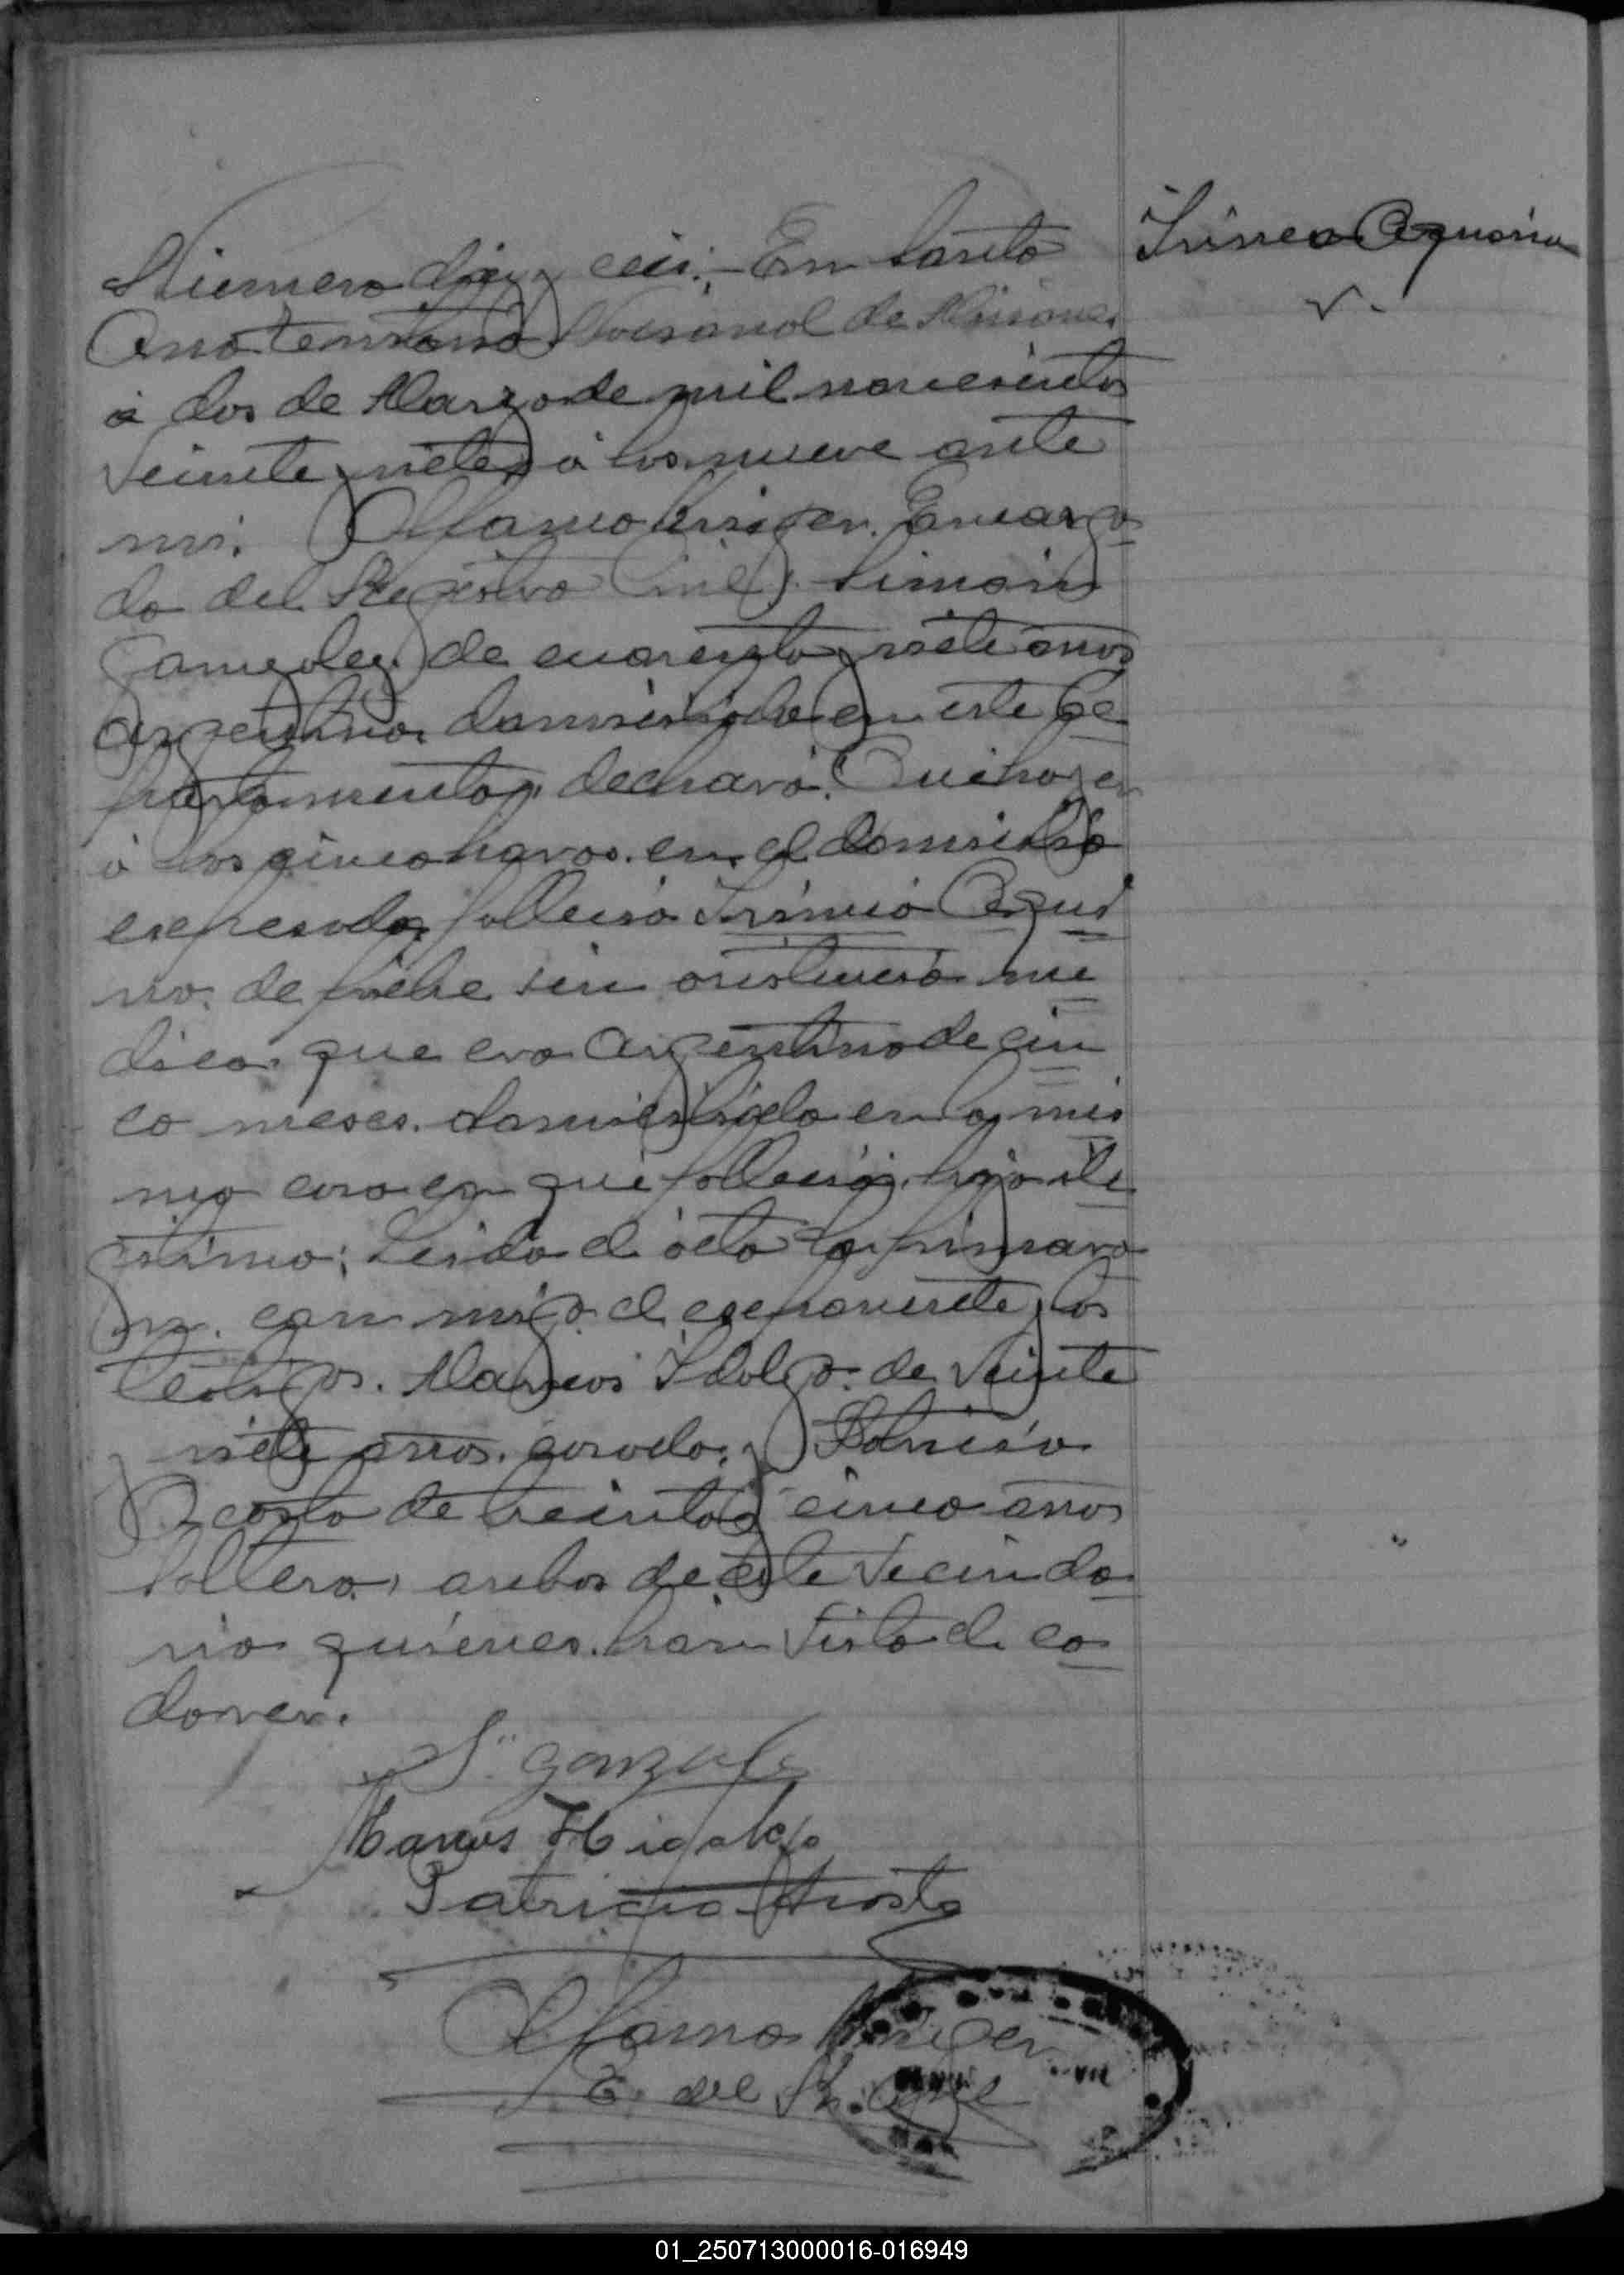 Irineo Aquino
Numero diez y ceis. En Santo
Ana territorio Nacional de Misiones
a dos de Marzo de mil novecientos
Veinte y siete, á las nueve ante
mi. Encarga
do del Registro Civil. Simon
Gonzalez. de cuarenta y siete años
argentino. domiciliado en este De
partamento, declaró. Que hoy
á las cinco horas. en el domicilio
expresado, falleció Irineo Aqui
no. de fiebre sin asistencia me
dica. que era Argentino de cin
co meses. domiciliado en la mis
ma casa en que falleció, hijo ile
gitimo; Leida el acta la firmaro
n. con migo el exponente y los
testigos. Marcos Idolgo. de Veinte
siete años. casado. y Patricio
Acosta de treinta y cinco años
Soltero, ambos de este Vecinda
rio quienes. han Visto el ca
daver.
S. Gonzalez
Marcos Hidalgo
Patricio Acosta
E. del R. Civil
01_250713000016-016949